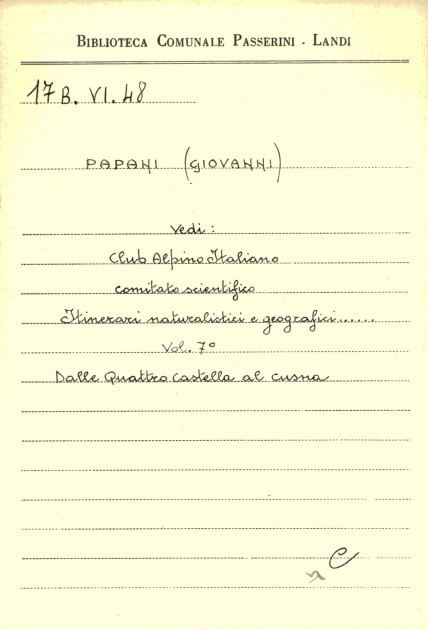 BIBLIOTECA COMUNALE PASSERINI - LANDI
17 B. VI. 48
PAPANI (GIOVANNI)
Vedi:
Club Alpino Italiano
comitato scientifico
Itinerari naturalistici e geografici......
Vol. 7°
Dalle Quattro Castella al Cusna
C